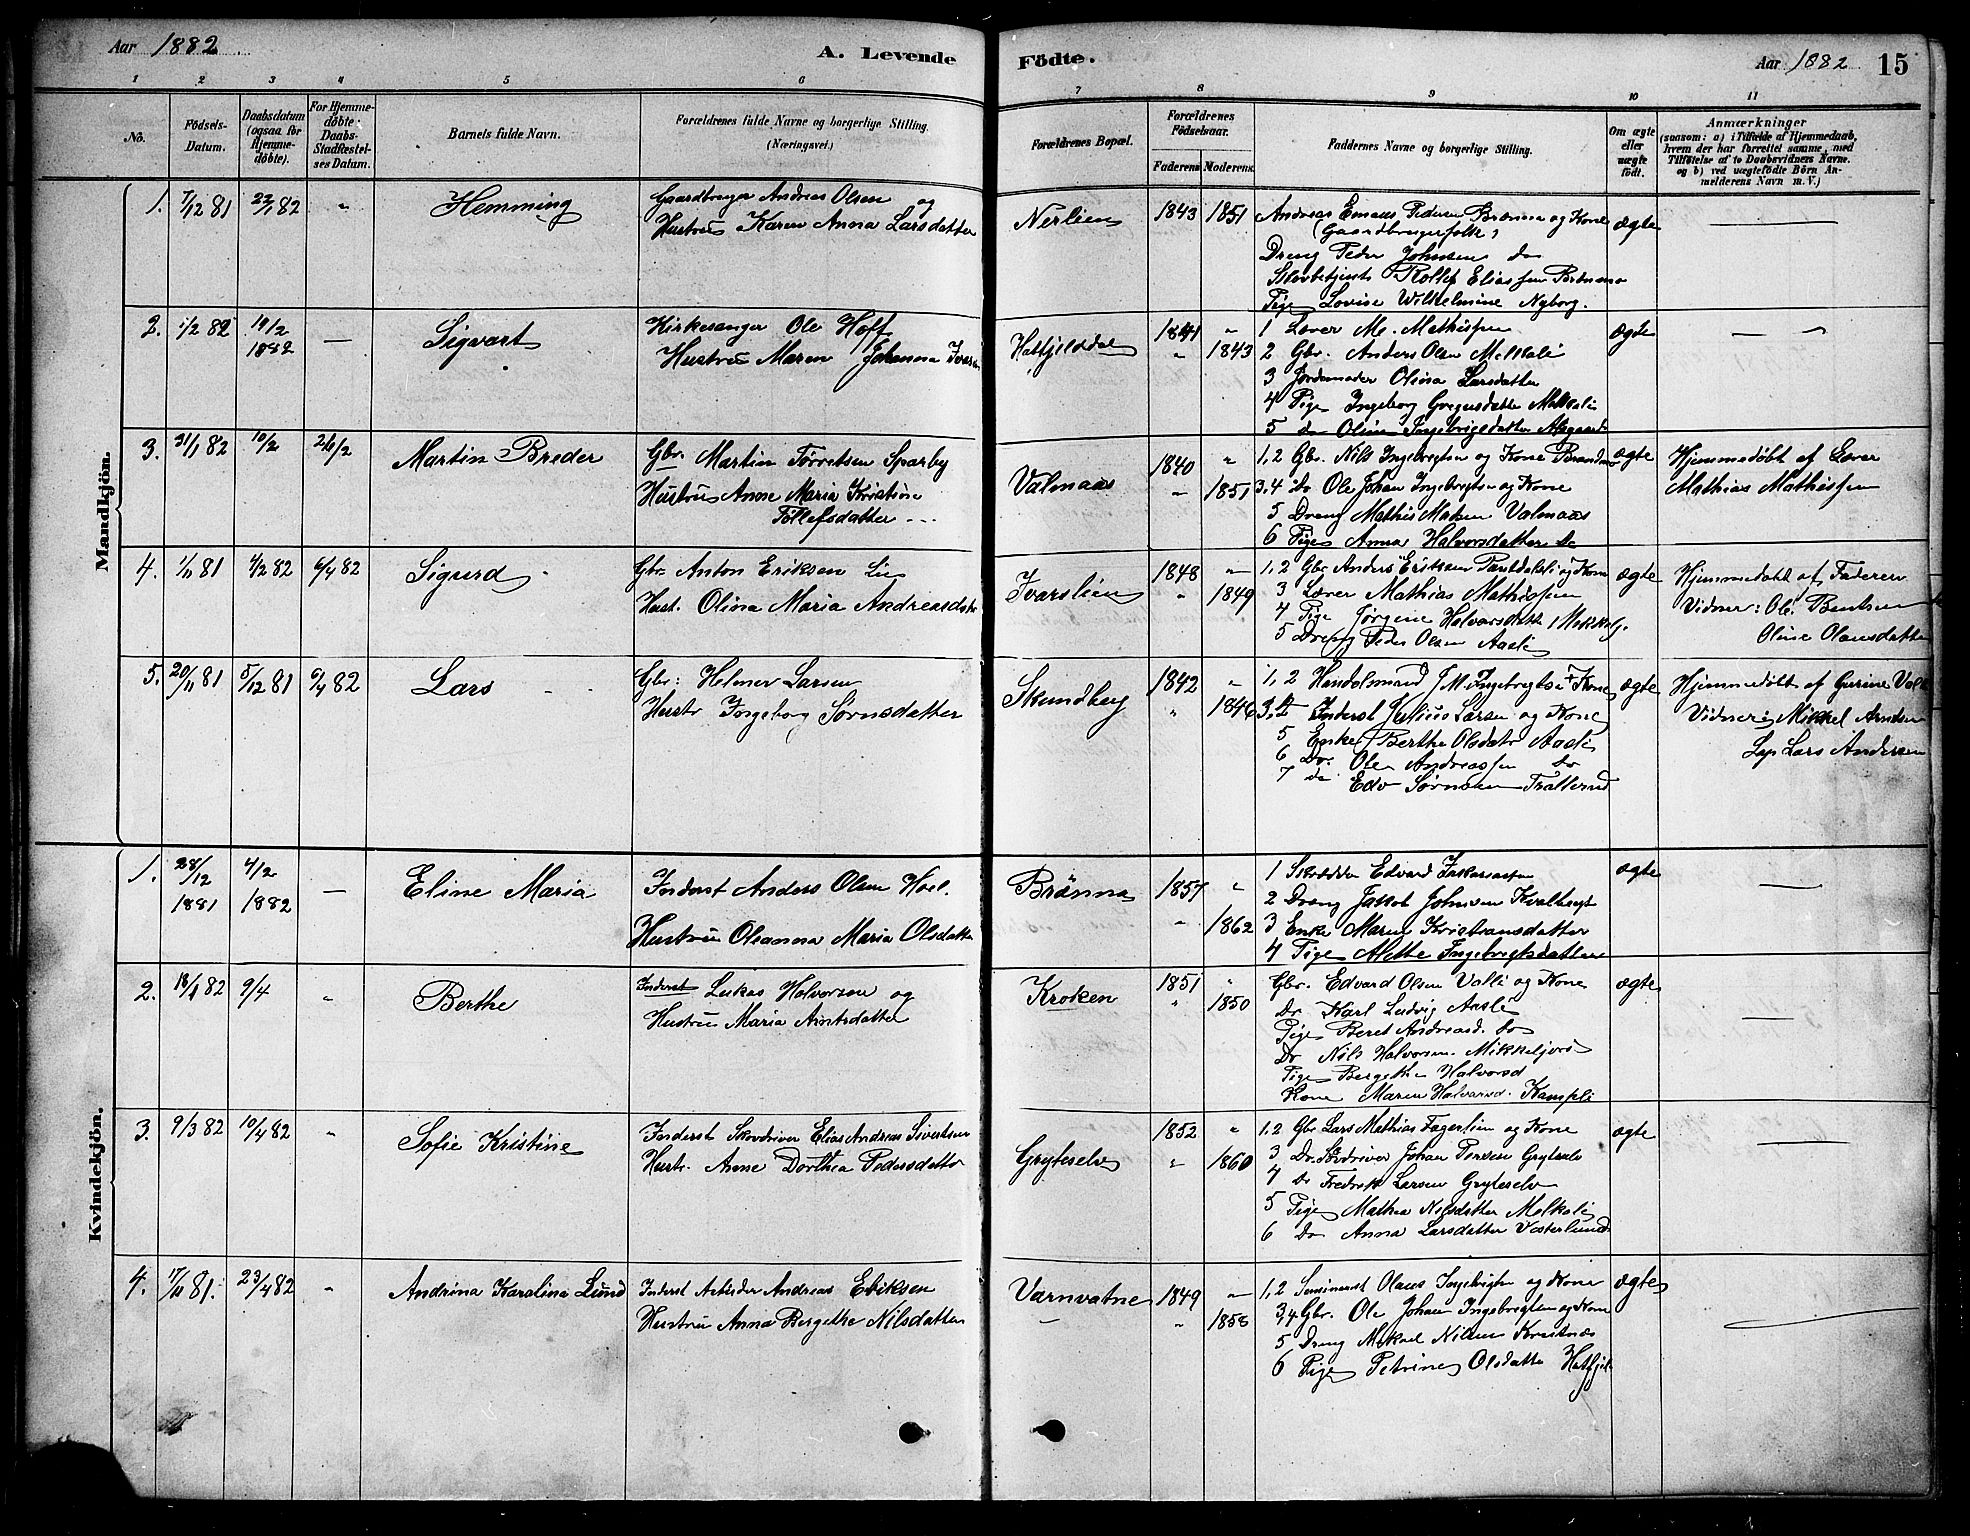 Aar 1882
A. Levende Födte.
Aar 1882 15
1 2 3 4 5 6 7 8 9 10 11
No.
Födsels-Datum.
Daabsdatum (ogsaa for Hjemme-döbte).
For Hjemme-döbte: Daabs-Stadfæstel-ses Datum.
Barnets fulde Navn.
Forældrenes fulde Navne og borgerlige Stilling.
(Næringsvei.)
Forældrenes Bopæl.
Forældrenes Födselsaar.
Faderens Moderens
Faddernes Navne og borgerlige Stilling.
Om ægte eller uægte födt.
Anmærkninger
(saasom: a) i Tilfælde af Hjemmedaab, hvem der har forrettet samme, med Tilföielse af to Daabsvidners Navne. og b) ved uægtefödte Börn An-melderens Navn m. V.)
Mandkjön.
1. 7/12 81 22/1 82 " Hemming
Gaardbruger Andreas Olsen og
Hustru Karen Anna Larsdatter
Nerlien 1843 1851
Andreas Emaus Pedersen Brønmo og Kone
(Gaardbrugerfolk)
Dreng Peder Johnsen do
Skovbetjent Rollef Eliassen Brønmo
Pige Lovise Wilhelmine Nyborg.
ægte —
2. 1/2 82 19/2 1882 — Sigvart
Kirkesanger Ole Hoff
Hustru Maren Johanna Ivars
Hatfjelddal 1841 " 1843
1 Lærer M. Mathissen
2 Gbr. Anders Olsen Melkeli
3 Jordemoder Olina Larsdatter
4 Pige Ingeborg Gregusdatter Melkeli
5 do Olina Ingebrigtdatter
ægte —
3. 31/1 82 10/2 26/2 Martin Breder
Gbr. Martin Tørretsen Sparby
Hustru Anne Maria Kristine
Tollefsdatter
Valmaas 1840 " 1851
1,2 Gbr. Nils Ingebrigtsen og Kone
3.4 do Ole Johan Ingebrigtsen og Kone
5 Dreng Mathis Matsen Valmaas
6 Pige Anna Halvorsdatter do
ægte
Hjemmedøbt af Lærer
Mathias Mathissen
4. 1/11 81 7/2 82 6/4 82 Sigurd
Gbr Anton Eriksen Lie
Hust. Olina Maria Andreasdatr
Ivarslien 1848 " 1849
1,2 Gbr Anders Eriksen og Kone
3 Lærer Mathias Mathissen
4 Pige Jørgine Halvorsdatt
5 Dreng Peder Olsen Aasli
ægte
Hjemmedøbt af Faderen
Vidner: Ole Bentsen
Oline Olausdatter
5. 20/11 81 5/12 81 6/4 82 Lars
Gbr: Helmer Larsen
Hustr Ingeborg Sørnsdatter
Skundberg 1842 " 1846
1,2 Handelsmand J M. Ingebrigtsen Kone
3,4 Inderst Julius Larsen og Kone
5 Enke Berthe Olsdatr Aasli
6 Dr. Ole Andreassen do
7 do Edv Sørnsen
ægte
Hjemmedøbt af Gurine
Vidner: Mikkel Arntsen
Lars Andersen
Kvindekjön.
1. 28/12 1881 4/2 1882 — Eline Maria
Inderst Anders Olsen Hoel.
Hustru Oleanna Maria Olsdatter
Brønmo 1857 " 1862
1 Skrædder Edvard Zakariassen
2 Dreng Jakob Johnsen
3 Enke Maren Kristiansdatter
4 Pige Alette Ingebrigtsdatter
ægte —
2. 82 9/4 " Berthe
Inderst Lukas Halvorsen og
Hustru Maria Arntsdatter
Kroken 1851 " 1850
Gbr. Edvard Olsen Valli og Kone
Dr Karl Ludvig Aasli
Pige Beret Andreasd. do
Dr Nils Halvorsen
Pige Bergethe Halvorsd
Kone Maren Halvorsd. Kampli
ægte —
3. 9/3 82 10/4 82 " Sofie Kristine
Inderst Skovdriver Elias Andreas Sivertsen
Hustr. Anne Dorthea Pedersdatter
Gryteselv 1852 " 1860
1,2 Gbr Lars Mathias Fagerlien og Kone
3 Dr. Johan Gryteselv
4 Dr Fredrik Larsen Gryteselv
5 Pige Mathea Nilsdatter Melkeli
6 Do Anna Larsdatter Vesterlund
ægte —
4. 17/11 81. 23/4 82 " Andrina Karolina Lund
Inderst Arbeider Andreas Eriksen
Hustru Anna Bergethe Nilsdatter
Varnvatne 1849 " 1858
1,2 Olaus Ingebrigtsen og Kone
3,4 Gbr. Ole Johan Ingebrigtsen og Kone
5 Dreng Mikael Nilsen
6 Pige Petrine Olsdatter Hatfjel
ægte —